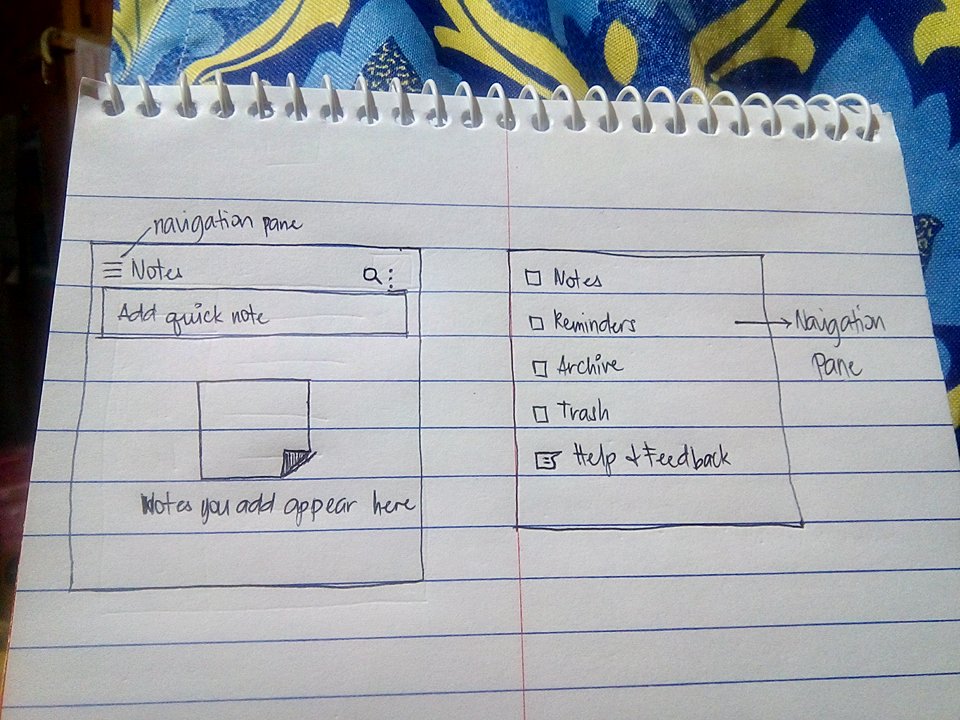 navigation pane
Notes
Add quick note
Notes you add appear here
Notes
Reminders
Archive
Trash
Help & Feedback
Navigation
Pane